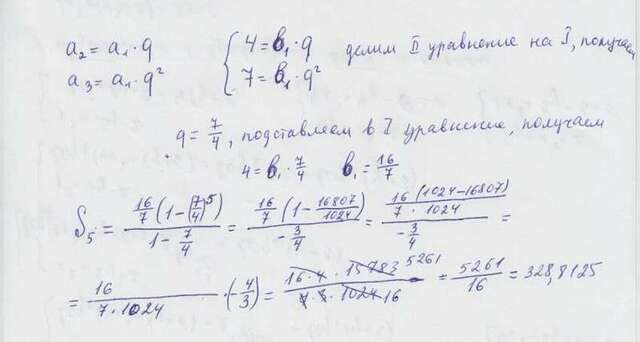 a₂ = a₁·q { 4 = b₁·q делим II уравнение на I, получаем
a₃ = a₁·q² 7 = b₁·q²
q = 7/4, подставляем в I уравнение, получаем
4 = b₁·7/4 b₁ = 16/7
S₅ = (16/7 (1-(7/4)⁵))/(1-7/4) = (16/7 (1-16807/1024))/(-3/4) = (16 (1024-16807)/(7·1024))/(-3/4) =
= 16/(7·1024) ·(-4/3) = (16·4·15783 5261)/(7·3·1024 16) = 5261/16 = 328,8125